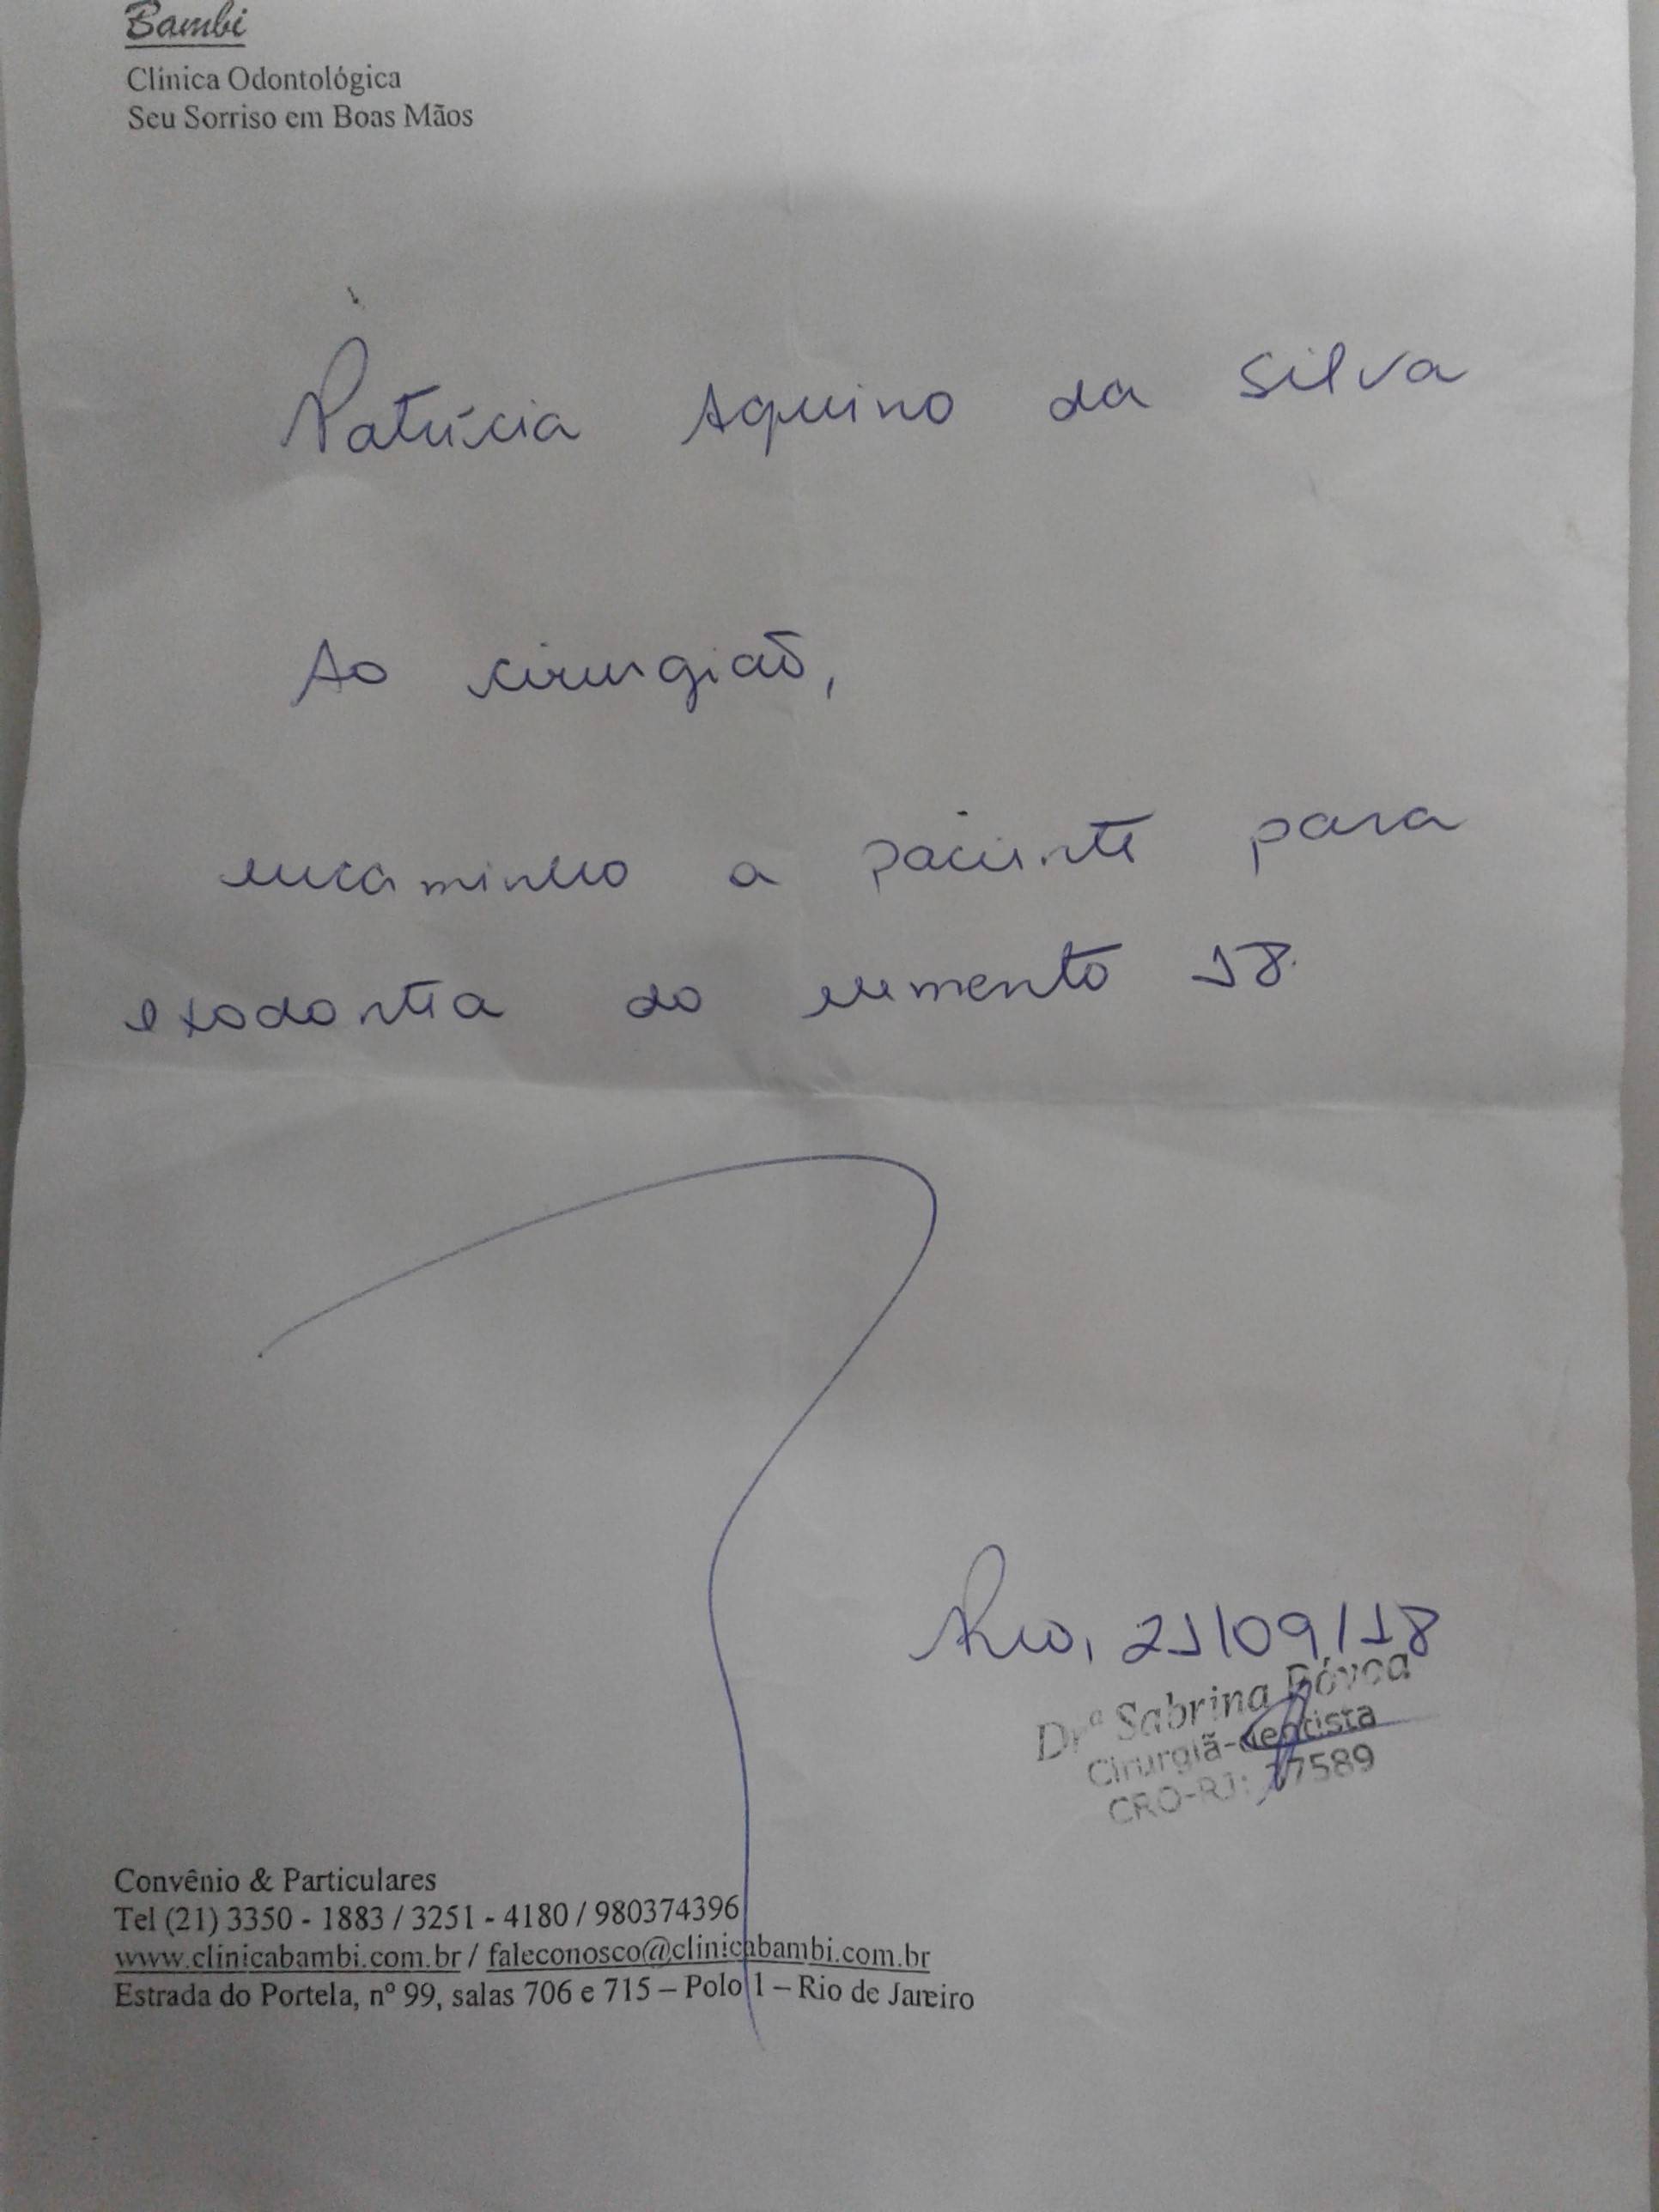 Bambi
Clínica Odontológica
Seu Sorriso em Boas Mãos
Patrícia Aquino da Silva
Ao cirurgião,
encaminho a paciente para
exodontia do elemento 18.
Rio, 21/09/18
Drª Sabrina Póvoa
Cirurgiã-dentista
CRO-RJ: 37589
Convênio & Particulares
Tel (21) 3350 - 1883 / 3251 - 4180 / 980374396
www.clinicabambi.com.br / faleconosco@clinicabambi.com.br
Estrada do Portela, nº 99, salas 706 e 715 – Polo 1 – Rio de Janeiro